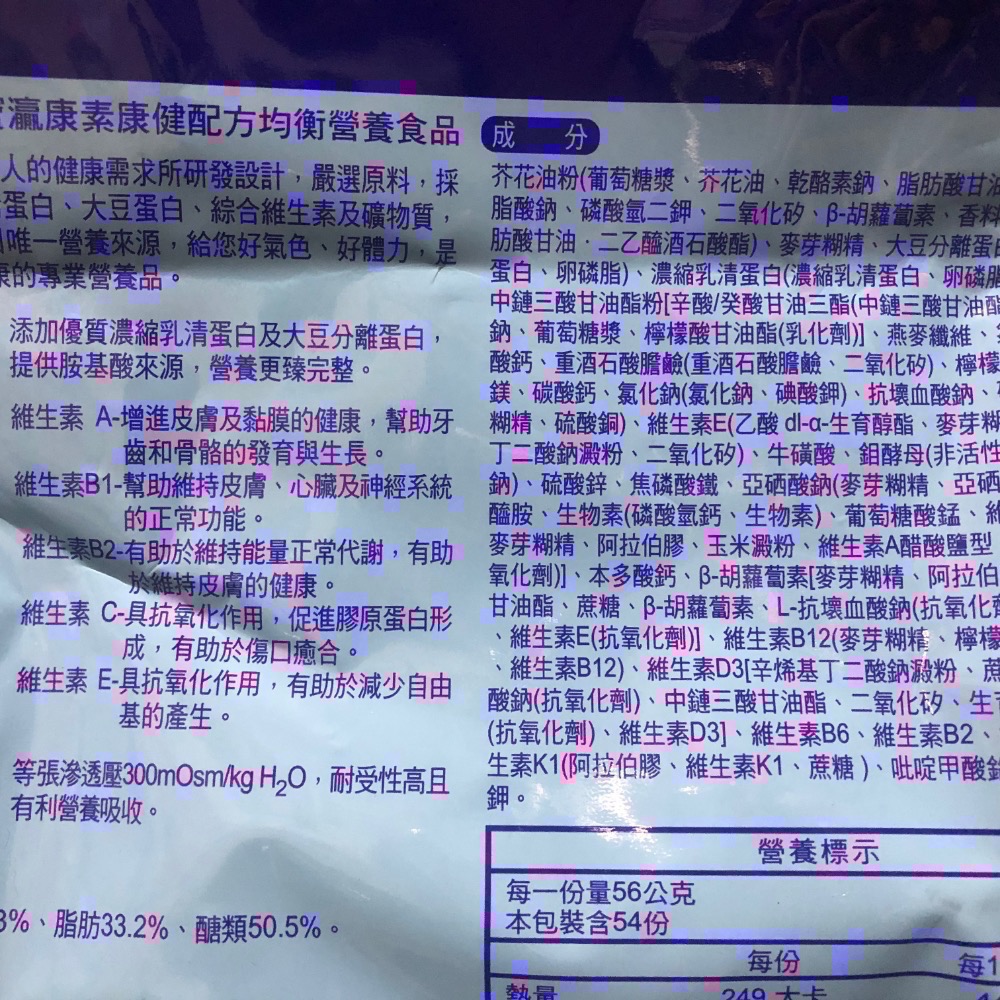 瀛康素康健配方均衡營養食品
人的健康需求所研發設計，嚴選原料，採
蛋白、大豆蛋白、綜合維生素及礦物質，
唯一營養來源，給您好氣色、好體力，是
的專業營養品。
添加優質濃縮乳清蛋白及大豆分離蛋白，
提供胺基酸來源，營養更臻完整。
維生素 A-增進皮膚及黏膜的健康，幫助牙
齒和骨骼的發育與生長。
維生素B1-幫助維持皮膚、心臟及神經系統
的正常功能。
維生素B2-有助於維持能量正常代謝，有助
於維持皮膚的健康。
維生素 C-具抗氧化作用，促進膠原蛋白形
成，有助於傷口癒合。
維生素 E-具抗氧化作用，有助於減少自由
基的產生。
等張滲透壓300mOsm/kg H₂O，耐受性高且
有利營養吸收。
3%、脂肪33.2%、醣類50.5%。
成 分
芥花油粉(葡萄糖漿、芥花油、乾酪素鈉、脂肪酸甘油
脂酸鈉、磷酸氫二鉀、二氧化矽、β-胡蘿蔔素、香料
肪酸甘油．二乙醯酒石酸酯)、麥芽糊精、大豆分離蛋白
蛋白、卵磷脂)、濃縮乳清蛋白(濃縮乳清蛋白、卵磷脂
中鏈三酸甘油酯粉[辛酸/癸酸甘油三酯(中鏈三酸甘油酯
鈉、葡萄糖漿、檸檬酸甘油酯(乳化劑)]、燕麥纖維、
酸鈣、重酒石酸膽鹼(重酒石酸膽鹼、二氧化矽)、檸檬
鎂、碳酸鈣、氯化鈉(氯化鈉、碘酸鉀)、抗壞血酸鈉、
糊精、硫酸銅)、維生素E(乙酸 dl-α-生育醇酯、麥芽糊
丁二酸鈉澱粉、二氧化矽)、牛磺酸、鉬酵母(非活性
鈉)、硫酸鋅、焦磷酸鐵、亞硒酸鈉(麥芽糊精、亞硒
醯胺、生物素(磷酸氫鈣、生物素)、葡萄糖酸錳、維
麥芽糊精、阿拉伯膠、玉米澱粉、維生素A醋酸鹽型
氧化劑)]、本多酸鈣、β-胡蘿蔔素[麥芽糊精、阿拉伯
甘油酯、蔗糖、β-胡蘿蔔素、L-抗壞血酸鈉(抗氧化劑
、維生素E(抗氧化劑)]、維生素B12(麥芽糊精、檸檬
、維生素B12)、維生素D3[辛烯基丁二酸鈉澱粉、蔗
酸鈉(抗氧化劑)、中鏈三酸甘油酯、二氧化矽、生育
(抗氧化劑)、維生素D3]、維生素B6、維生素B2、
生素K1(阿拉伯膠、維生素K1、蔗糖)、吡啶甲酸鉻
鉀。
營養標示
每一份量56公克
本包裝含54份
每份 每1
熱量 249 大卡